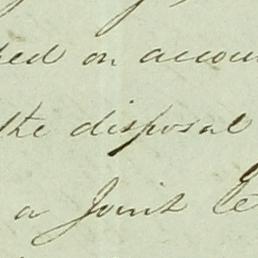 ped on accoun
the disposal
a Joint Le